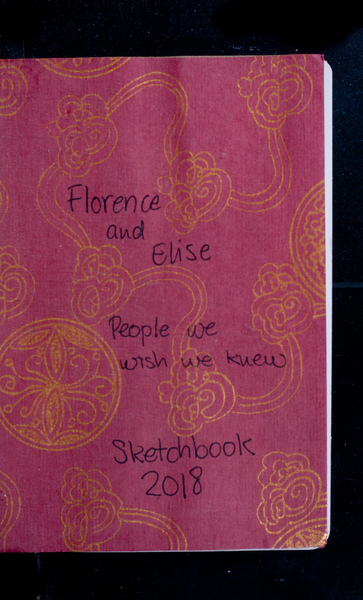 Florence
and
Elise
People we
wish we knew
Sketchbook
2018